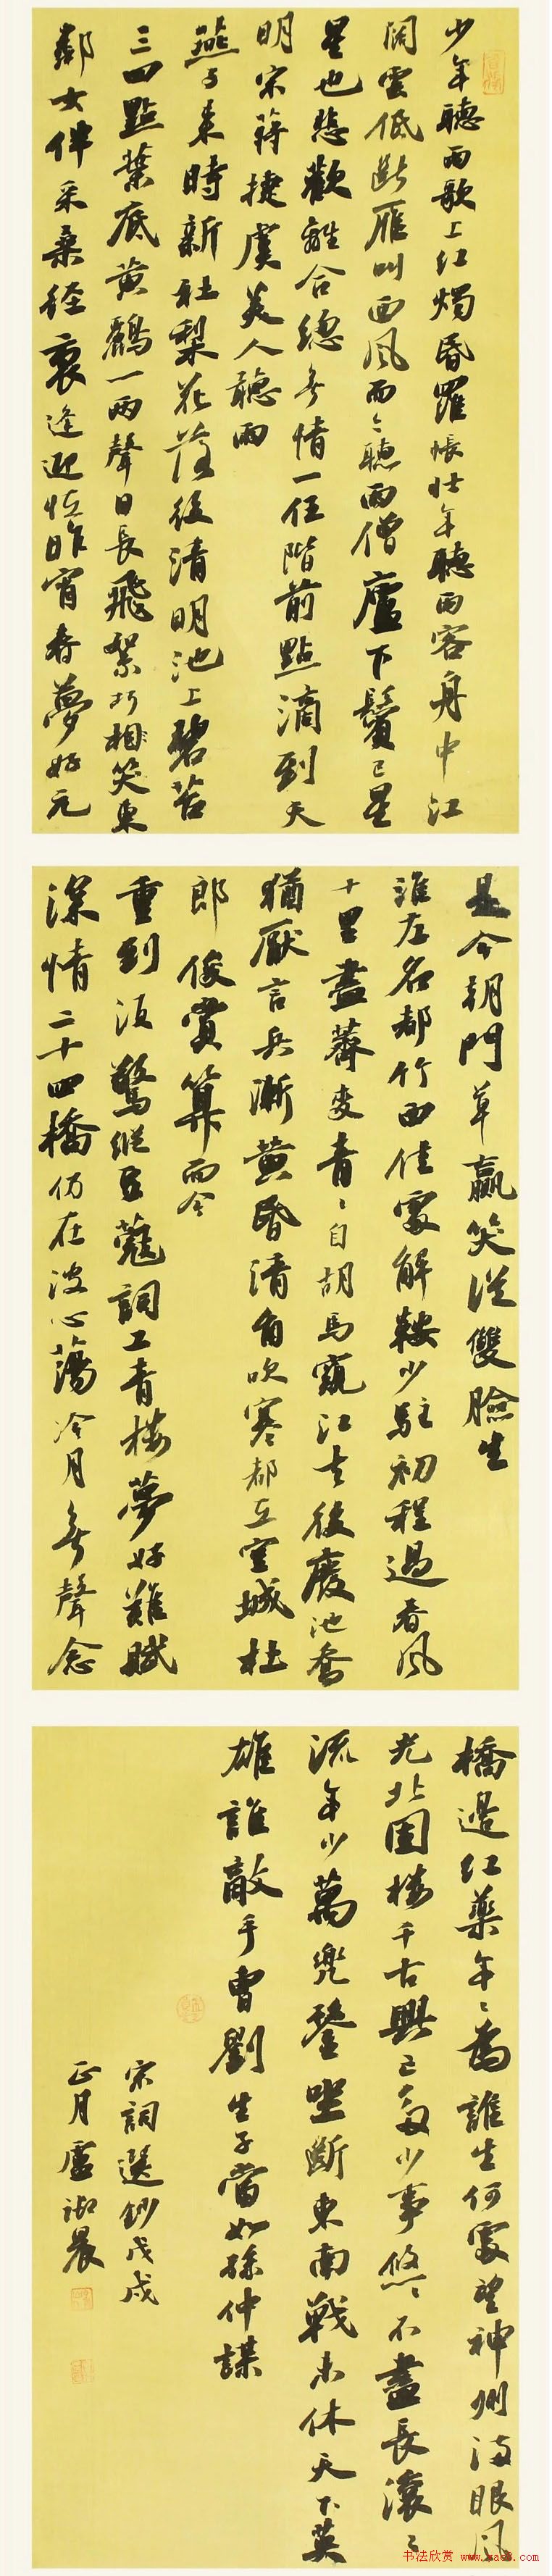 少年聽雨歌上紅燭昏羅帳壯年聽雨客舟中江
闊雲低斷雁叫西風而今聽雨僧廬下鬢已星
星也悲歡離合總無情一任階前點滴到天
明宋蔣捷虞美人聽雨
燕子來時新社梨花落後清明池上碧苔
三四點葉底黃鸝一兩聲日長飛絮巧相笑東
鄰女伴采桑徑裏逢迎恠昨宵春夢好元
是今朝鬥草贏笑從雙臉生
淮左名都竹西佳處解鞍少駐初程過春風
十里盡薺麥青〻自胡馬窺江去後廢池喬
猶厭言兵漸黃昏清角吹寒都在空城杜
郎俊賞算而今
重到須驚縱豆蔻詞工青樓夢好難賦
深情二十四橋仍在波心蕩冷月無聲念
橋邊紅藥年〻為誰生何處望神州滿眼風
光北固樓千古興亡多少事悠〻不盡長滾〻
流年少萬兜鍪坐斷東南戰未休天下英
雄誰敵手曹劉生子當如孫仲謀
宋詞選鈔戊戌
正月盧淑晨
书法欣赏 www.yac8.com